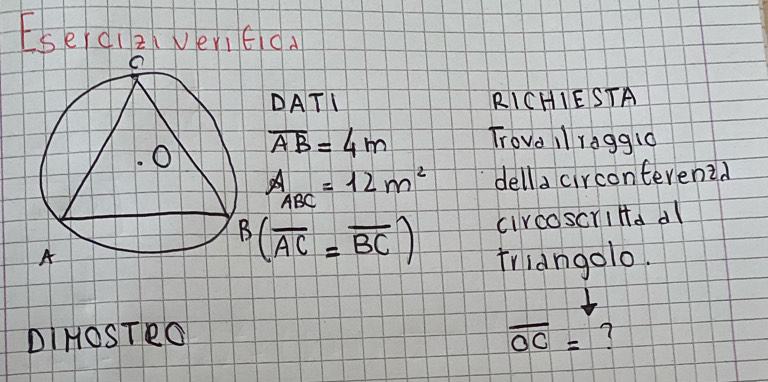 Esercizi verifica
C
.O
A
B
DATI
AB = 4 m
A ABC = 12 m²
(AC = BC)
RICHIESTA
Trova il raggio
della circonferenza
circoscritta al
triangolo.
↓
OC = ?
DIMOSTRO